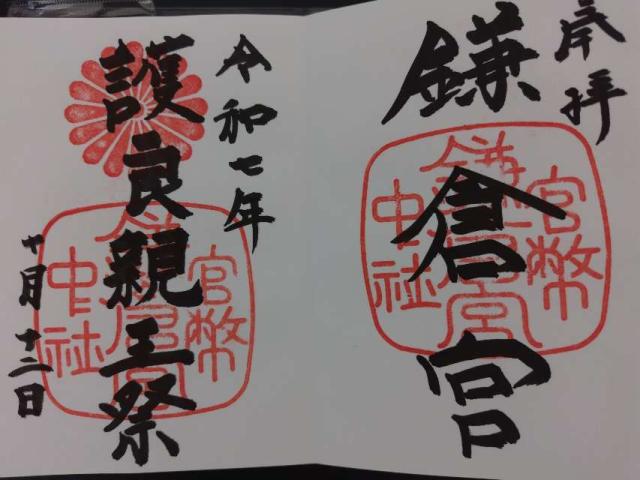 奉拝
鎌倉宮
官幣
鎌倉宮
中社
令和七年
護良親王祭
十月十二日
官幣
鎌倉宮
中社